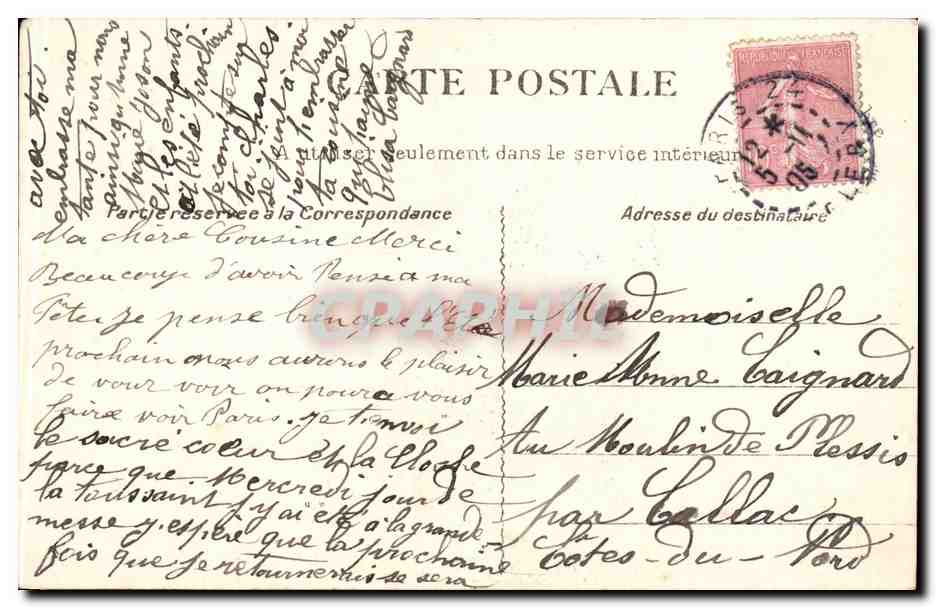 CARTE POSTALE
A utiliser seulement dans le service intérieur
Partie réservée à la Correspondance
Adresse du destinataire
REPUBLIQUE FRANÇAISE
PARIS
12
52
-11
05
CPARAMA
Ma chère Cousine Merci
Beaucoup d'avoir Pensé a ma
Fête, je pense bien que l'Eté
prochain nous aurons le plaisir
de vour voir on poura vous
faire voir Paris. je t'envoi
le sacré coeur et la Cloche
parce que Mercredi jour de
la Toussaint j'y ai été à la grande
messe j'espère que la prochaine
fois que je retournerais se sera
avec toi
embrasse ma
tante pour nous
ainsi qu'Anne
Marie Yoson
et les enfants
a l'été prochain
je compte sur
toi Charles
se joint à moi
pour t'embrasser
ta cousine
qui t'aime
Elisa
Mademoiselle
Marie Anne Caignard
Au Moulin de Plessis
par Callac
Côtes-du-Nord